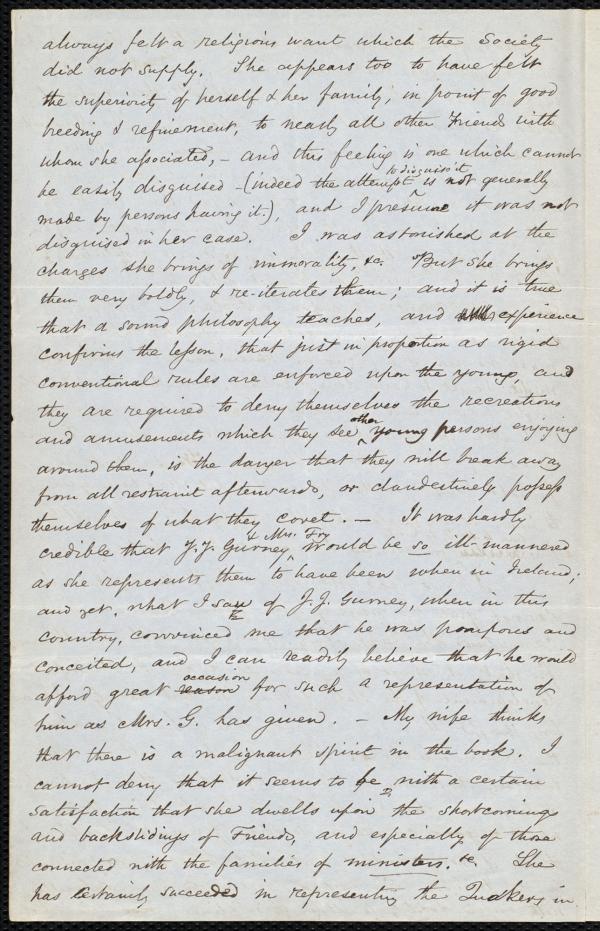 always felt a religious want which the Society
did not supply. She appears too to have felt
the superiority of herself & her family, in point of good
breeding & refinement, to nearly all other Friends with
whom she associated, - and this feeling is one which cannot
to disguise it
be easily disguised - (indeed the attempt ^ is not generally
made by persons having it.), and I presume it was not
disguised in her case. I was astonished at the
charges she brings of immorality, &c. But she brings
them very boldly, & re-iterates them; and it is true
that a sound philosophy teaches, and experience
confirms the lesson, that just in proportion as rigid
conventional rules are enforced upon the young, and
they are required to deny themselves the recreations
other
and amusements which they see ^ young persons enjoying
around them, is the danger that they will break away
from all restraint afterwards, or clandestinely possess
themselves of what they covet. - It was hardly
& Mrs. Fry
credible that J. J. Gurney ^ would be so ill-mannered
as she represents them to have been when in Ireland;
and yet, what I saw of J. J. Gurney, when in this
country, convinced me that he was pompous and
conceited, and I can readily believe that he would
occasion
afford great reason for such a representation of
him as Mrs. G. has given. - My wife thinks
that there is a malignant spirit in the book. I
cannot deny that it seems to be with a certain
satisfaction that she dwells upon the shortcomings
and backslidings of Friends, and especially of those
connected with the families of ministers. &c. She
has certainly succeeded in representing the Quakers in